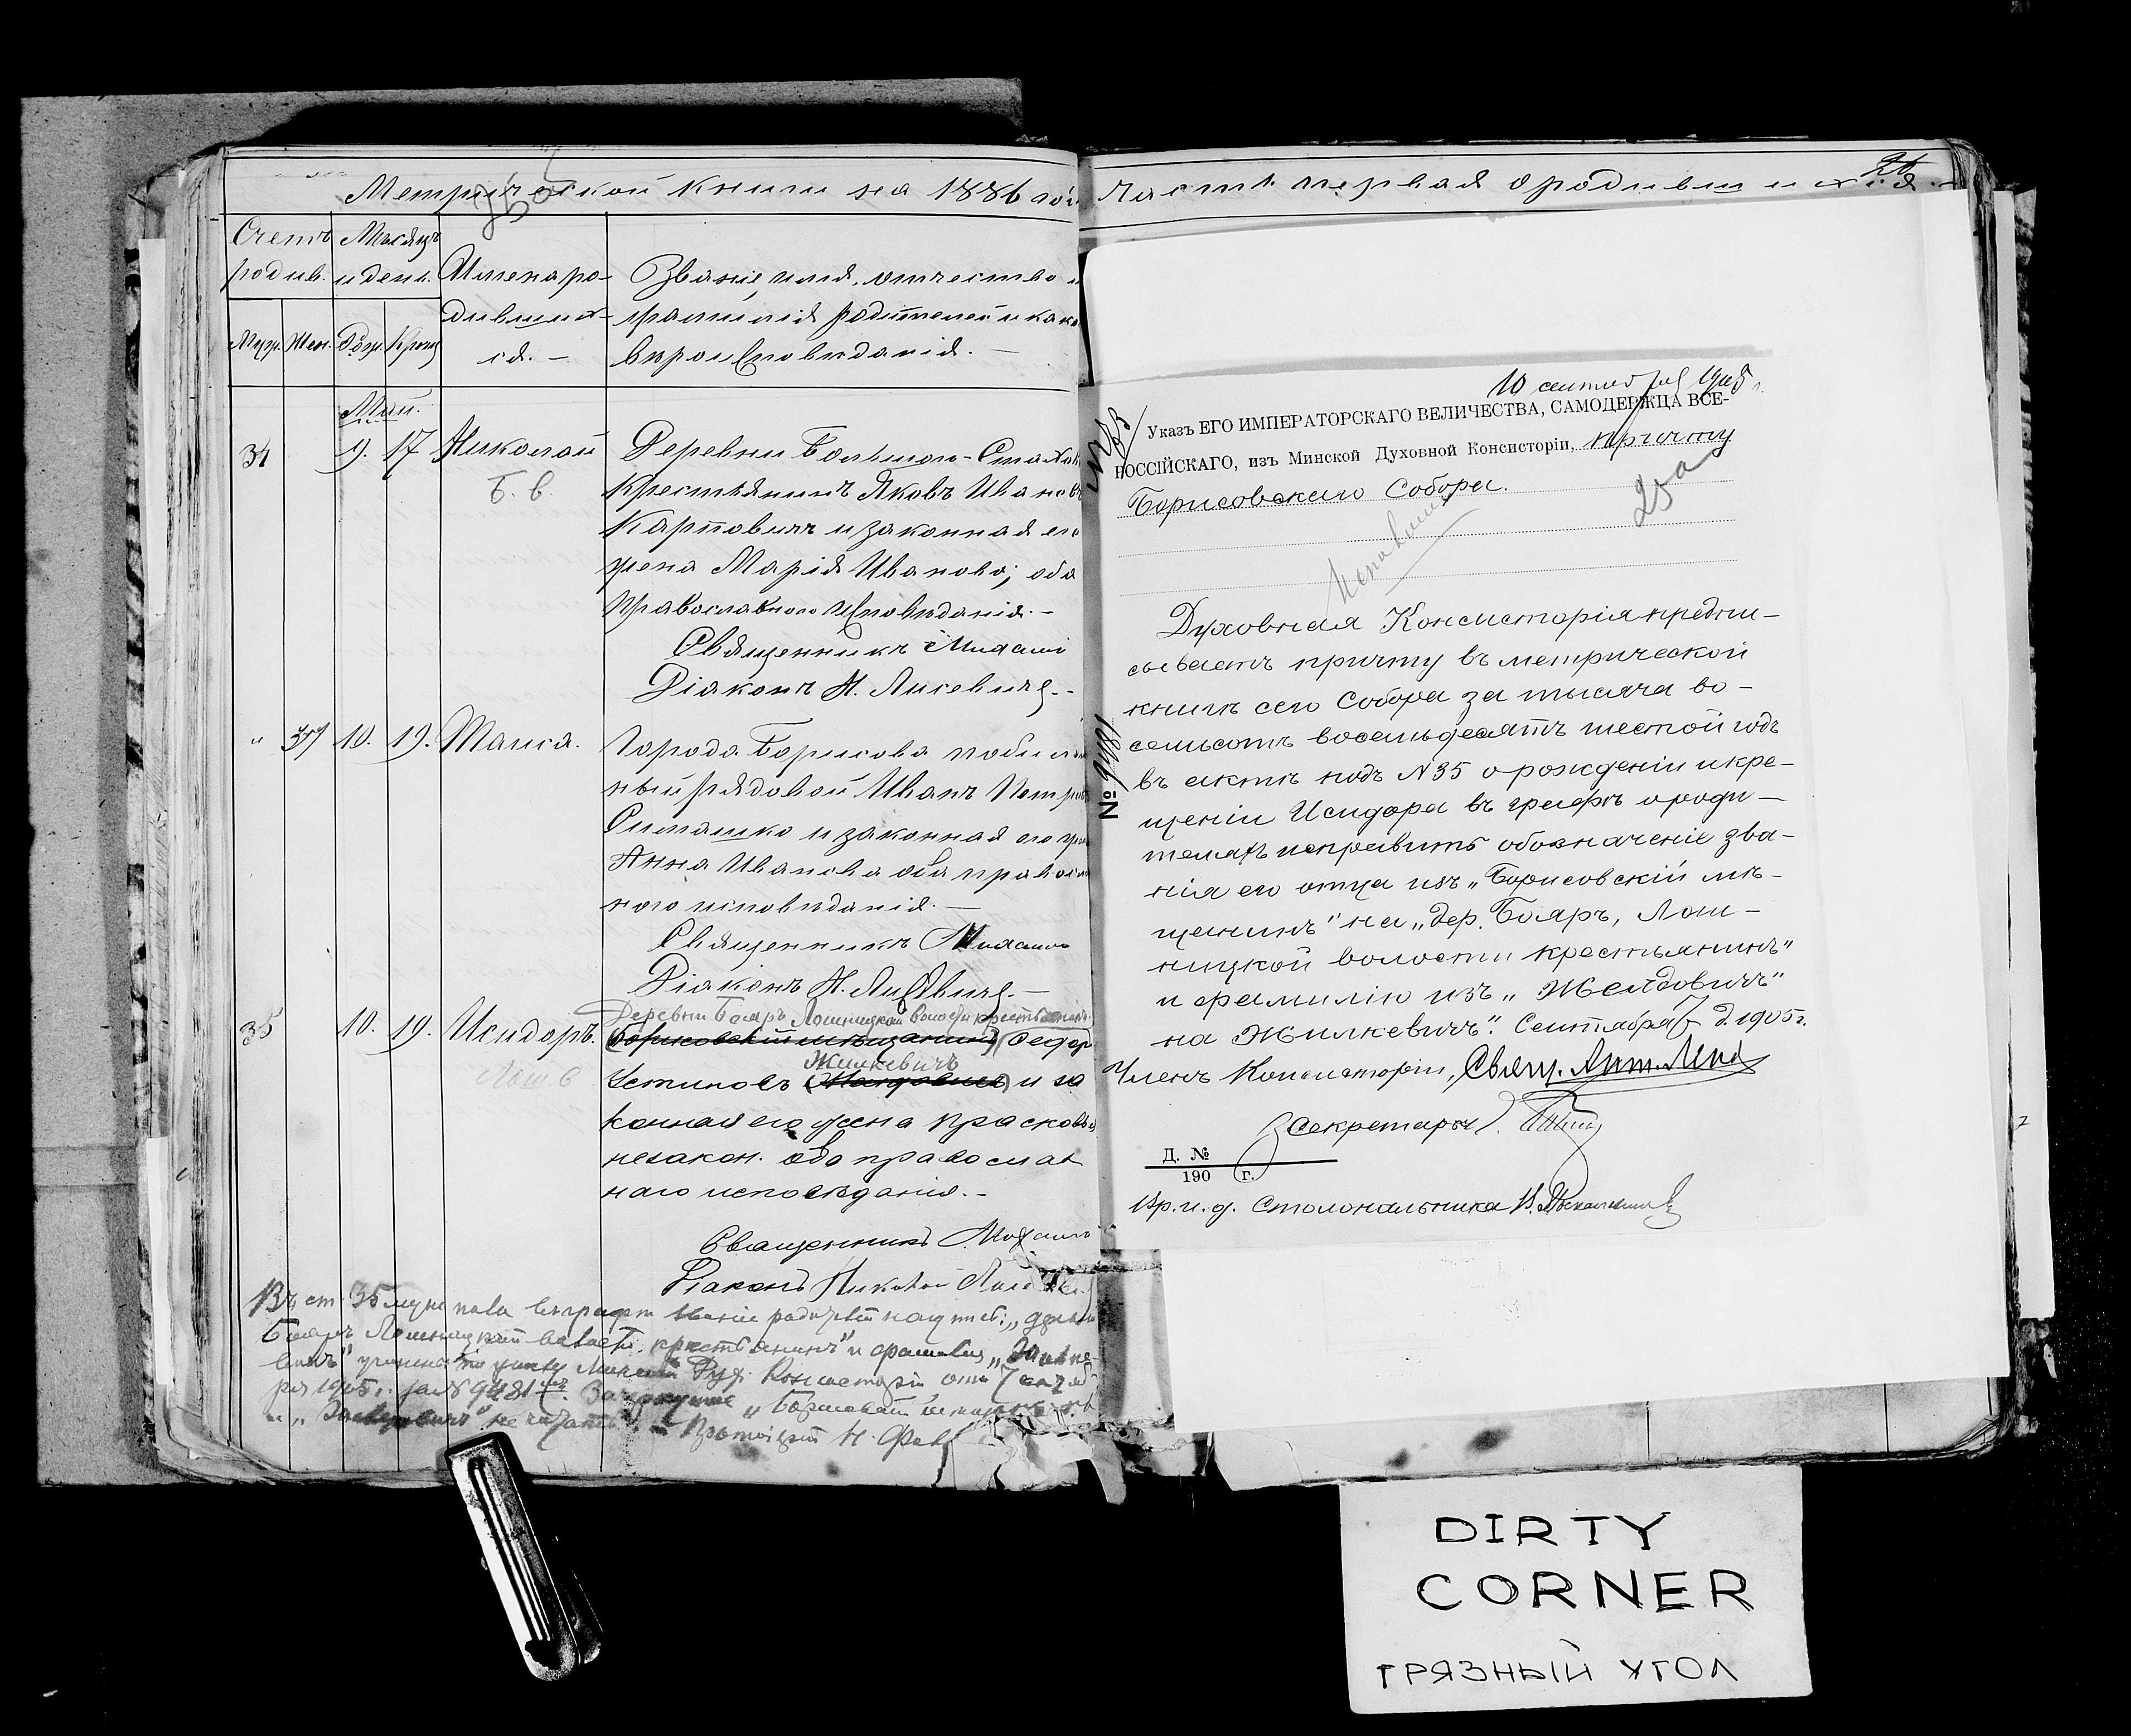 Метрической книги на 1886 годъ
Часть первая о родившихся.
26
Счетъ родив.
Мѣсяцъ и день.
Муж. Жен. Рож. Крещ.
Имена ро-
дивших-
ся. —
Званіе, имя, отчество и
фамилія родителей и какого
вѣроисповѣданія. —
Май.
34 9. 17 Николай
Б. в.
Деревни Большого-Стахова
крестьянинъ Яковъ Ивановъ
Карповичъ и законная его
жена Марія Иванова; оба
православного исповѣданія. —
Священникъ
Діаконъ Н. Лисевичъ. -
" 37 10. 19. Таиса.
Города Борисова
ный рядовой Иванъ Петровъ
Симашко и законная его жена
Анна Иванова оба правосл
ного исповѣданія. —
Священникъ
Діаконъ Н.
35 10. 19. Исидоръ.
Лош. в
Деревни Бояръ Лошницкой волости крестьянинъ
(Борисовскій мѣщанинъ) Сидоръ
Жилкевичъ
Устиновъ и за
конная его жена Прасковья
незакон. оба православ
наго исповѣданія. -
Священникъ
Діаконъ Николай
Въ ст. 35 муж. пола въ графѣ званіе
Бояръ Лошницкой волости, крестьянинъ" и фамилія „Жилке-
вичъ" учинена по указу Минской Дух. Консисторіи отъ 7 сентяб
ря 1905 г. за № 9481. Зачеркнутые „Борисовскій мѣщанинъ"
и не читать. — Протоіерей Н.
10 сентября 1905 г.
№ 83
Указъ ЕГО ИМПЕРАТОРСКАГО ВЕЛИЧЕСТВА, САМОДЕРЖЦА ВСЕ-
РОССІЙСКАГО, изъ Минской Духовной Консисторіи, причту
Борисовскаго Собора.
№ 9481
Духовная Консисторія предпи-
сываетъ причту въ метрической
книгѣ сего Собора за тысяча во-
семьсотъ восемьдесятъ шестой годъ
въ актѣ подъ N 35 о рожденіи и кре-
щеніи Исидора въ графѣ о роди-
теляхъ исправить обозначеніе зва-
нія его отца изъ „Борисовскій мѣ-
щанинъ" на „дер. Бояръ, Лош-
ницкой волости крестьянинъ"
и фамилію изъ „Желдовичъ"
на Жилкевичъ". Сентября 7 д. 1905 г.
Членъ Консисторіи, Свящ. Ант.
Секретарь
Д. №
190 г.
Вр. и. д. Столоначальника
DIRTY
CORNER
ГРЯЗНЫЙ УГОЛ